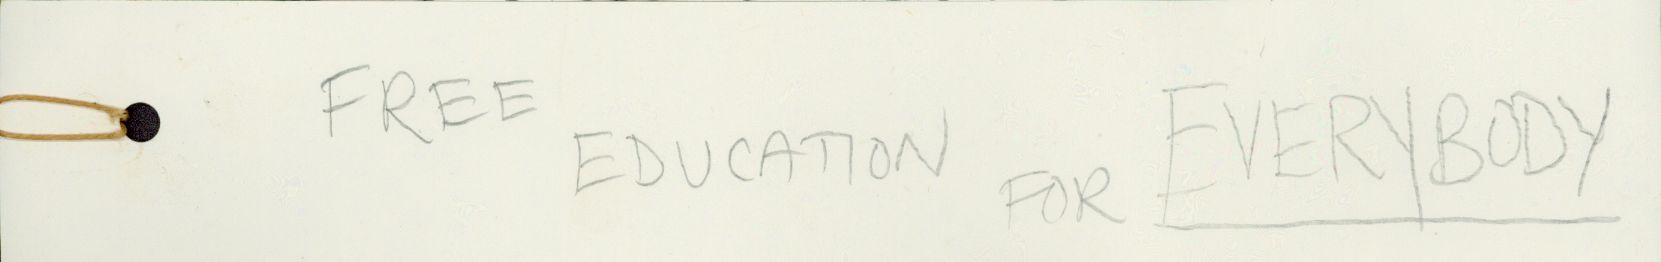 FREE EDUCATION FOR EVERYBODY